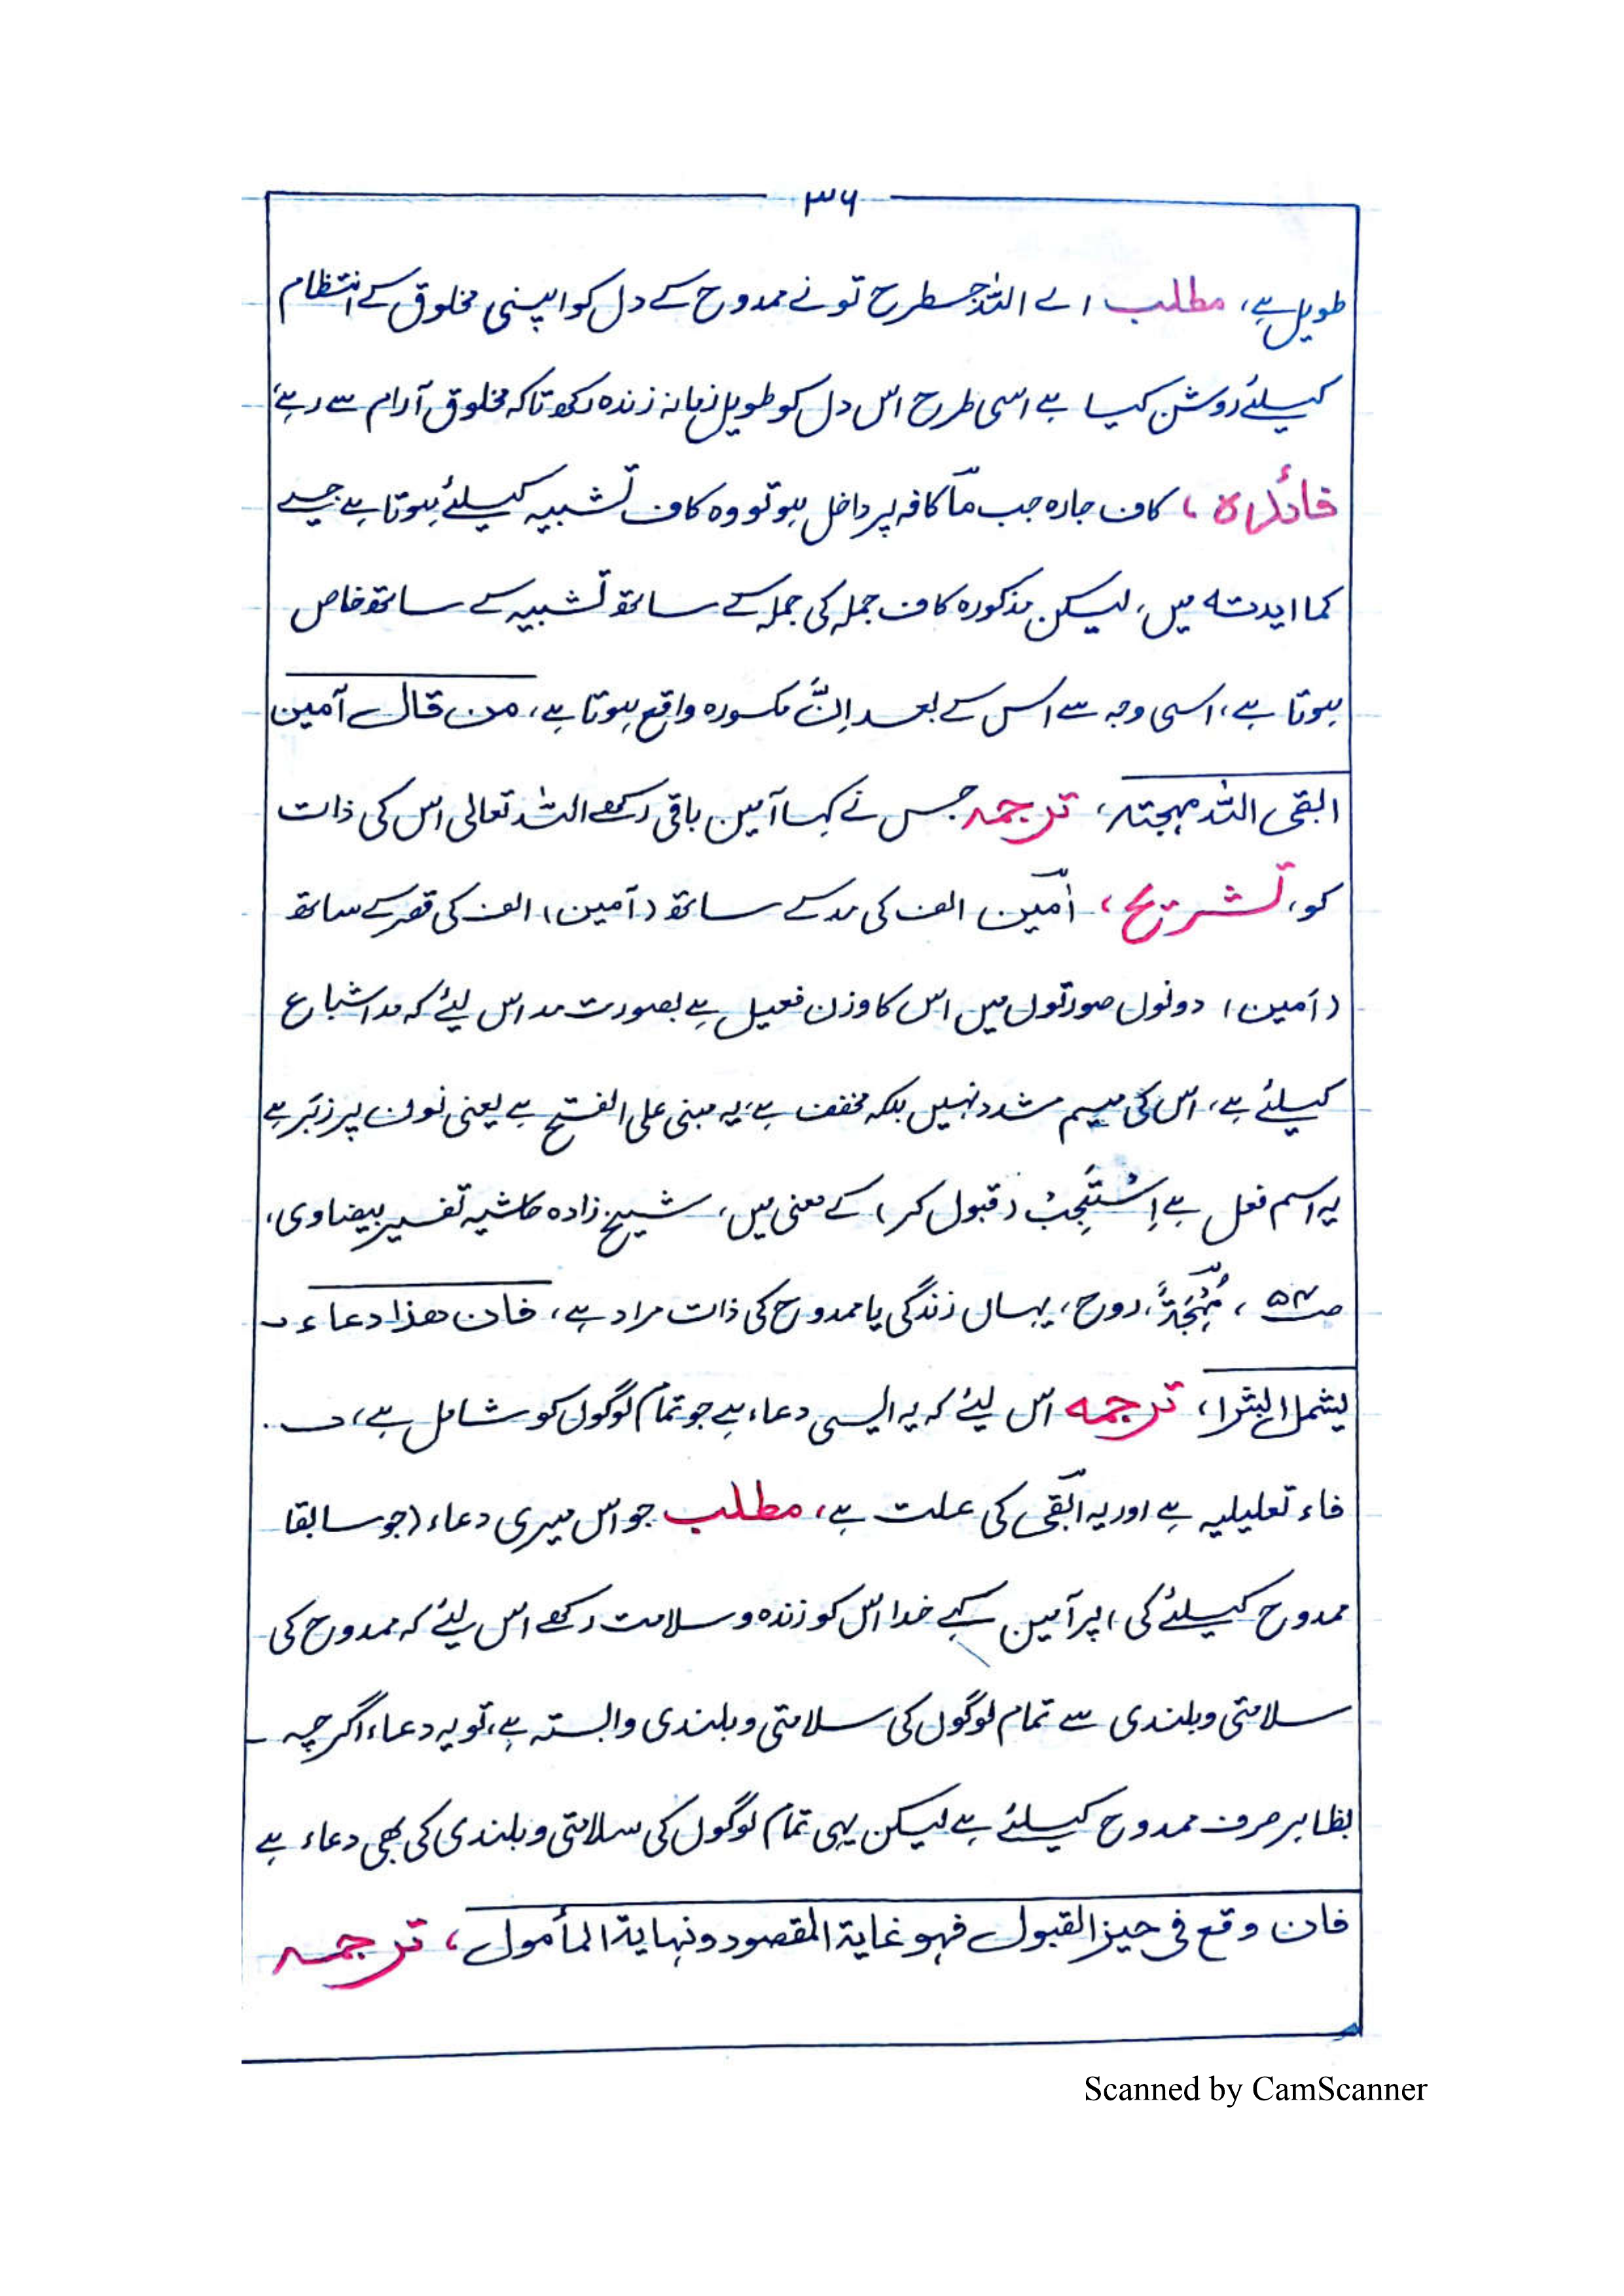 ۳۶
طویل ہے، مطلب اے اللہ جسطرح تو نے ممدوح کے دل کو اپنی مخلوق کے انتظام
کیلئے روشن کیا ہے اسی طرح اس دل کو طویل زمانہ زندہ رکھ تاکہ مخلوق آرام سے رہے،
فائدہ، کاف جارہ جب مآ کافہ پر داخل ہو تو وہ کاف تشبیہ کیلئے ہوتا ہے جیسے
کما ایدتہ میں، لیکن مذکورہ کاف جملہ کی جملہ کے ساتھ تشبیہ کے ساتھ خاص
ہوتا ہے، اسی وجہ سے اس کے بعد اِنَّ مکسورہ واقع ہوتا ہے، من قال آمین
ابقی اللہ مہجتہ، ترجمہ جس نے کہا آمین باقی رکھے اللہ تعالی اس کی ذات
کو، تشریح، اٰمین الف کی مد کے ساتھ (آمین) الف کی قصر کے ساتھ
(اَمین) دونوں صورتوں میں اس کا وزن فعیل ہے بصورت مد اس لیئے کہ مد اشباع
کیلئے ہے، اس کی میم مشدد نہیں بلکہ مخفف ہے، یہ مبنی علی الفتح ہے یعنی نون پر زبَر ہے
یہ اسم فعل ہے اِسْتَجِبْ (قبول کر) کے معنی میں، شیخ زادہ حاشیہ تفسیر بیضاوی،
صـ۵۴، مُہْجَۃً، روح، یہاں زندگی یا ممدوح کی ذات مراد ہے، فان ھذا دعاء
یشمل البشرا، ترجمہ اس لیئے کہ یہ ایسی دعاء ہے جو تمام لوگوں کو شامل ہے،
فاء تعلیلیہ ہے اور یہ ابقی کی علت ہے، مطلب جو اس میری دعاء (جو سابقا
ممدوح کیلئے کی) پر آمین کہے خدا اس کو زندہ و سلامت رکھے اس لیئے کہ ممدوح کی
سلامتی و بلندی سے تمام لوگوں کی سلامتی و بلندی وابستہ ہے، تو یہ دعاء اگرچہ
بظاہر صرف ممدوح کیلئے ہے لیکن یہی تمام لوگوں کی سلامتی و بلندی کی بھی دعاء ہے
فان وقع فی حیز القبول فہو غایۃ المقصود و نہایۃ المأمول، ترجمہ
Scanned by CamScanner